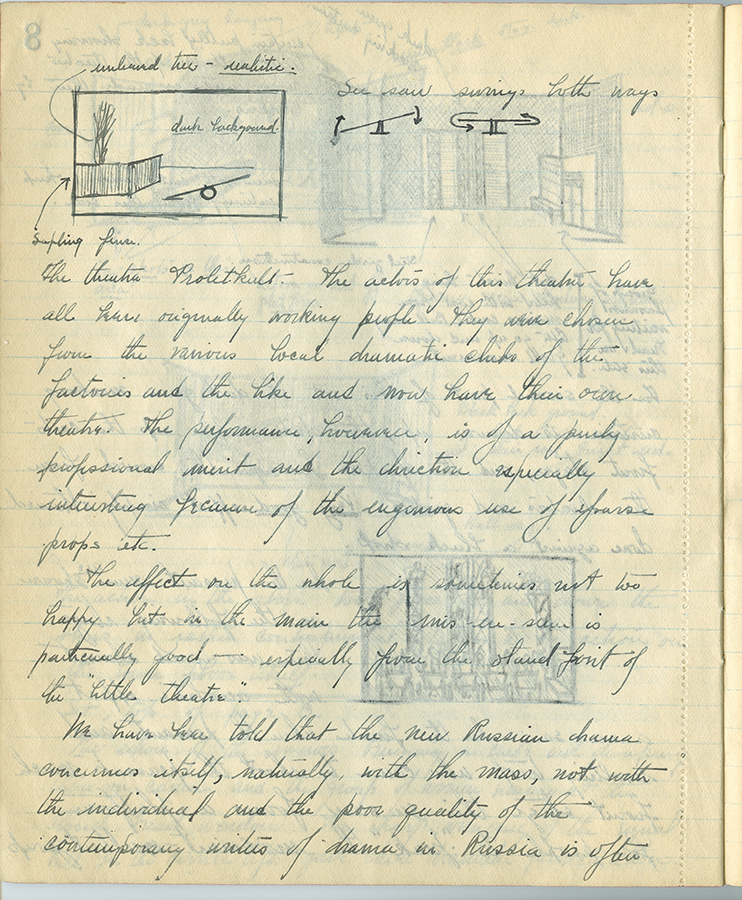 8
unbound tree - realistic.
See saw swings both ways
dark background.
Sapling fence.
The theatre Proletkult - The actors of this theatre have
all been originally working people they were chosen
from the various local dramatic clubs of the
factories and the like and now have their own
theatre. The performance, however, is of a purely
professional merit and the direction especially
interesting because of the engenious use of sparse
props etc.
The effect on the whole is sometimes not too
happy but in the main the mis-en-scene is
particually good — especially from the stand point of
the "little theatre".
We have been told that the new Russian drama
concernes itself, naturally, with the mass, not with
the individual and the poor quality of the
contemporary writers of drama in Russia is often